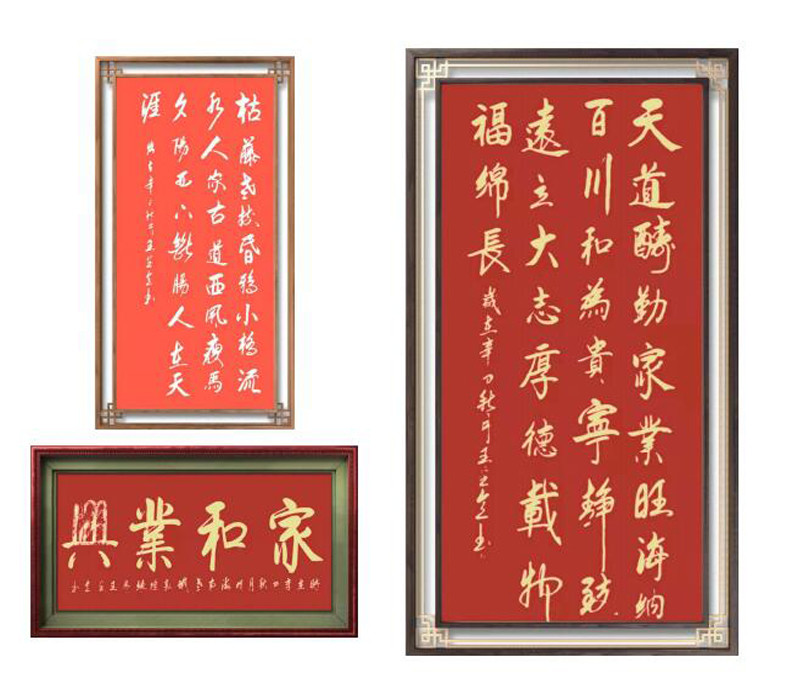 枯藤老树昏鸦小桥流
水人家古道西风瘦馬
夕陽西下斷腸人在天
涯
天道酬勤家業旺海纳
百川和為貴寧静致
遠立大志厚德載物
福綿長
歲在辛丑秋月王
家和業興